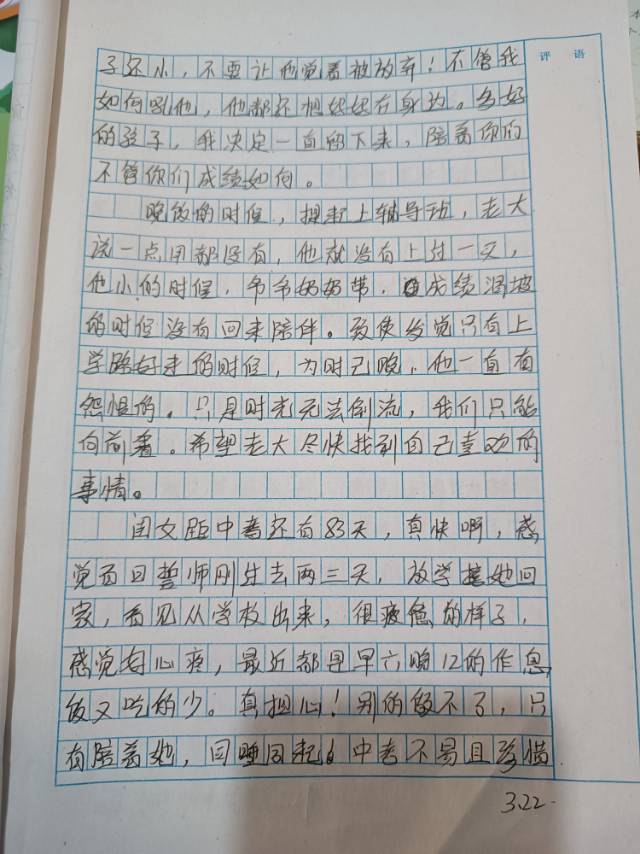 评 语
子还小，不要让他觉着被放弃！不管我
如何吼他，他都还把妈妈在身边。多好
的孩子，我决定一直留下来，陪着你们
不管你们成绩如何。
晚饭的时候，提到上辅导班，老大
说一点用都没有，他就没有上过一天，
他小的时候，爷爷奶奶带，成绩滑坡
的时候没有回来陪伴。致使发觉只有上
学路好走的时候，为时已晚，他一直有
怨恨的。只是时光无法倒流，我们只能
向前看。希望老大尽快找到自己喜欢的
事情。
闺女距中考还有83天，真快啊，感
觉百日誓师刚过去两三天，放学接她回
家，看见从学校出来，很疲惫的样子，
感觉好心疼，最近都是早六晚12的作息
饭又吃的少。真担心！别的做不了，只
有陪着她，同睡同起。中考不易且珍惜
3.22.